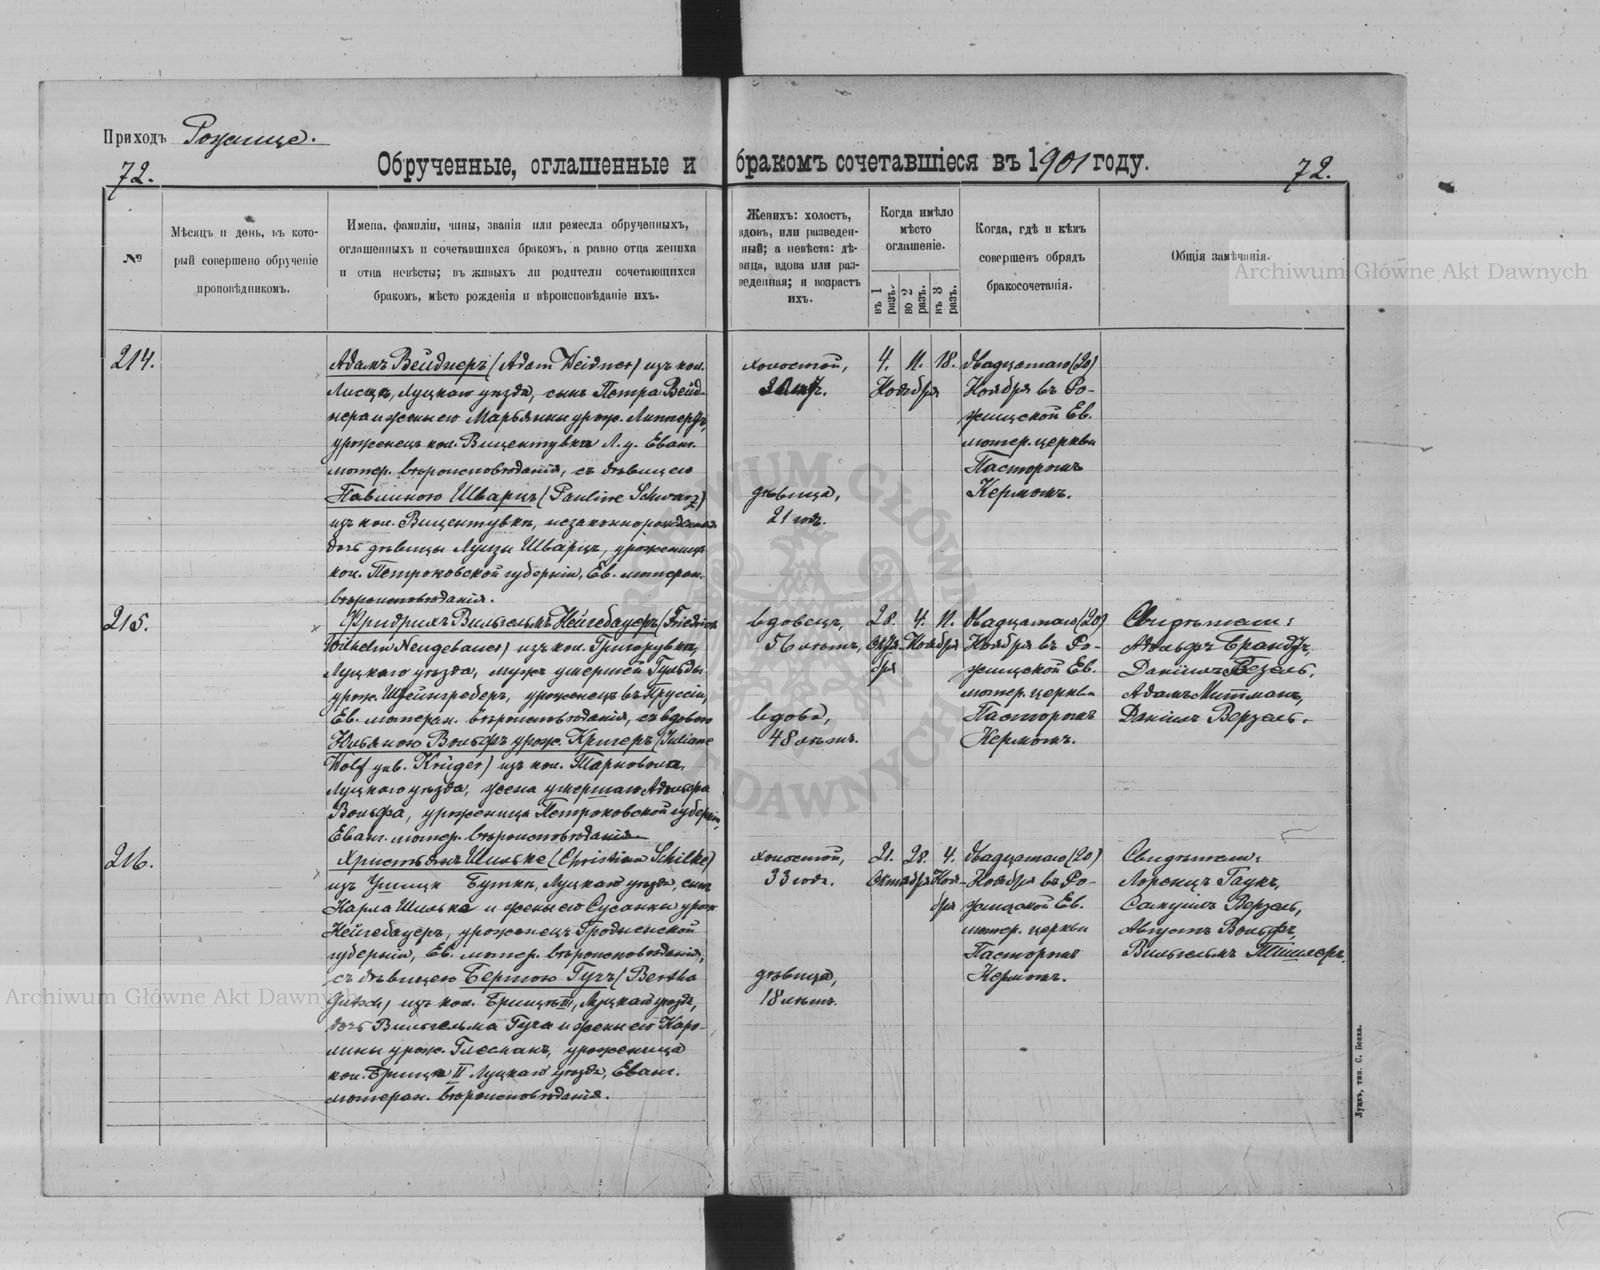 Приходъ Рожище.
72.
Обрученные, оглашенные и бракомъ сочетавшіеся въ 1901 году.
72.
№
Мѣсяцъ и день, въ кото-
рый совершено обрученіе
проповѣдникомъ.
Имена, фамиліи, чины, званія или ремесла обрученныхъ,
оглашенныхъ и сочетавшихся бракомъ, а равно отца жениха
и отца невѣсты; въ живыхъ ли родители сочетающихся
бракомъ, мѣсто рожденія и вѣроисповѣданіе ихъ.
Женихъ: холостъ,
вдовъ, или разведен-
ный; а невѣста: дѣ-
вица, вдова или раз-
веденная; и возрастъ
ихъ.
Когда имѣло
мѣсто
оглашеніе.
въ 1 разъ.
во 2 разъ.
въ 3 разъ.
Когда, гдѣ и кѣмъ
совершенъ обрядъ
бракосочетанія.
Общія замѣчанія.
Archiwum Główne Akt Dawnych
214.
Адамъ Вейднеръ (Adam Weidner) изъ кол.
Луцкаго уѣзда, сынъ Петра Вейд-
нера и жены его Марьянны урож.
уроженецъ кол. Вицентувка Л. у. Еванг.
лютер. вѣроисповѣданія, съ дѣвицею
Павлиною Шварцъ (Pauline Schwarz)
изъ кол. Вицентувка, незаконнорожденная
дочь дѣвицы Луизы Шварцъ, уроженица
кол. Петроковской губерніи, Ев. лютеран.
вѣроисповѣданія.
холостой,
дѣвица,
21 годъ.
4. 11. 18.
Ноября
двадцатаго (20)
Ноября въ Ро-
жищской Ев.
лютер. церкви
Пасторомъ
Кермомъ.
215.
Фридрихъ Вильгельмъ Нейгебауеръ (Friedrich
Wilhelm Neugebauer) изъ кол. Григорувка,
Луцкаго уѣзда, мужъ умершей Гульды
урож. Штейнгреберъ, уроженецъ въ Пруссіи,
Ев. лютеран. вѣроисповѣданія, съ вдовою
Юльяною Вольфъ урож. Кригеръ (Juliane
Wolf geb. Krüger) изъ кол. Тарноволя,
Луцкаго уѣзда, жена умершаго Адольфа
Вольфа, уроженица Петроковской губерніи,
Еванг. лютер. вѣроисповѣданія.
вдовецъ,
56 лѣтъ,
вдова,
48 лѣтъ.
28. 4. 11.
Октя- Ноября
бря
двадцатаго (20)
Ноября въ Ро-
жищской Ев.
лютер. церкви
Пасторомъ
Кермомъ.
Свидѣтели:
Адольфъ Брандтъ,
Даніилъ Везель,
Адамъ Митманъ,
Даніилъ Верзель.
216.
Христьянъ Шильке (Christian Schilke)
изъ Урищи Бутки, Луцкаго уѣзда, сынъ
Карла Шильке и жены его Сусанны урож.
Нейгебауеръ, уроженецъ Гродненской
губерніи, Ев. лютер. вѣроисповѣданія,
съ дѣвицею Бертою Гучъ (Bertha
Gutsch) изъ кол. Брищъ III, Луцкаго уѣзда,
дочь Вильгельма Гуча и жены его Каро-
лины урож. Глесманъ, уроженица
кол. Брищъ II Луцкаго уѣзда, Еванг.
лютеран. вѣроисповѣданія.
холостой,
33 года.
дѣвица,
18 лѣтъ.
21. 28. 4.
Октября Ноя-
бря
двадцатаго (20)
Ноября въ Ро-
жищской Ев.
лютер. церкви
Пасторомъ
Кермомъ.
Свидѣтели:
Лоренцъ Гаукъ,
Самуилъ Верзель,
Августъ Вольфъ,
Вильгельмъ Тишлеръ.
Archiwum Główne Akt Dawnych
Луцкъ, тип. С. Бонка.